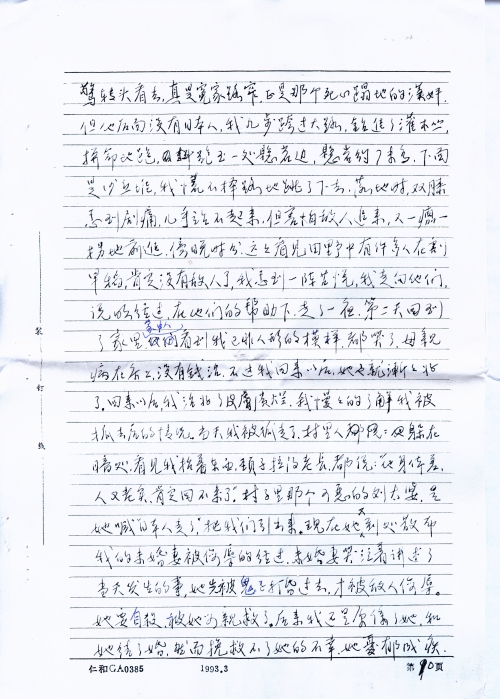 惊转头看去，真是冤家路窄，正是那个死心踏地的汉奸，
但他后面没有日本人，我几步跨过大路，钻进了灌木丛，
拼命地跑，跑至一处悬崖边，悬崖约丁来高，下面
是沙丘堆，我慌不择路地跳了下去，落地时，双膝
感到剧痛，几乎站不起来，但害怕敌人追来，又一瘸一
拐地前进，傍晚时分，远远看见田野中有许多人在割
早稻，肯定没有敌人了，我感到一阵喜悦，我走向他们，
说明经过，在他们的帮助下，走了一夜，第二天回到
了家里，家人看到我已非人形的模样，都哭了，母亲
病在床上，没有钱治，不过我回来以后，她也就渐渐好
了。回来以后，我治好了皮肤溃烂，我慢慢的了解我被
抓去后的情况，当天我被抓走了，村里人都说：她躲在
暗处，看见我抬着东西，颈子拉得老长，都说：他身体差，
人又老实，肯定回不来了。村子里那个可恶的刘大婆，是
她喊"日本人走了"，把我们引出来，现在她到处散布
我的未婚妻被侮辱的经过，未婚妻哭泣着讲述了
当天发生的事，她先被鬼子打昏过去，才被敌人侮辱。
她要自殺，被她母亲救了。后来我还是原谅了她，和
她结了婚，然而挽救不了她的不幸，她忧郁成疾，
装 订 线
仁和GA0385 1993.3 第10页